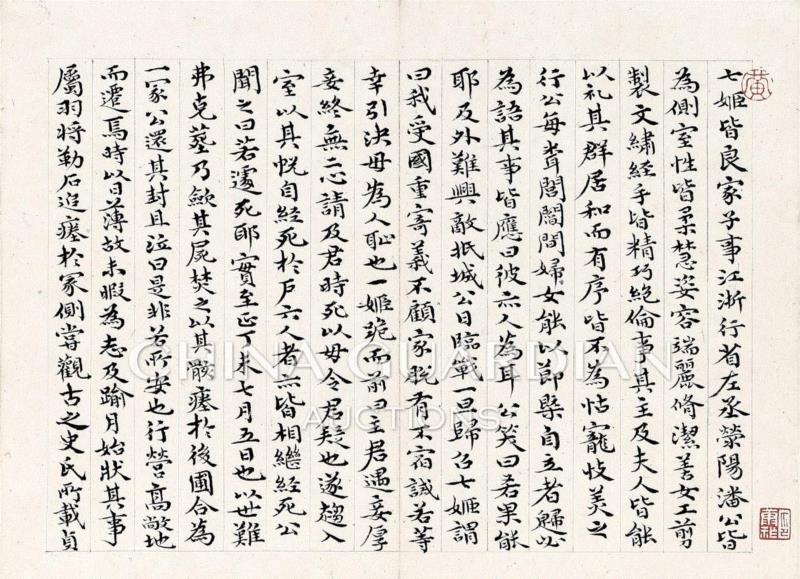 七姬皆良家子事江浙行省左丞滎陽潘公皆
為側室性皆柔慧姿容端麗脩潔善女工剪
製文繡經手皆精巧絕倫事其主及夫人皆能
以礼其群居和而有序皆不為怙寵忮美之
行公每聞閭閻婦女能以節槩自立者歸必
為語其事皆應曰彼亦人為耳公笑曰若果能
耶及外難興敵抵城公日臨戰一旦歸召七姬謂
曰我受國重寄義不顧家脫有不宿誡若等
幸引決毋為人恥也一姬跪而前曰主君遇妾厚
妾終無二心請及君時死以毋令君疑也遂趨入
室以其帨自經死於戶六人者亦皆相繼經死公
聞之曰若遽死耶實至正丁未七月五日也以世難
弗克葬乃斂其屍焚之以其骸瘞於後圃合為
一冢公還其封且泣曰是非若所安也行營高敞地
而遷焉時以日薄故未暇為志及踰月始狀其事
屬羽將勒石追瘞於冢側嘗觀古之史氏所載貞
CHINA GUARDIAN
AUCTIONS